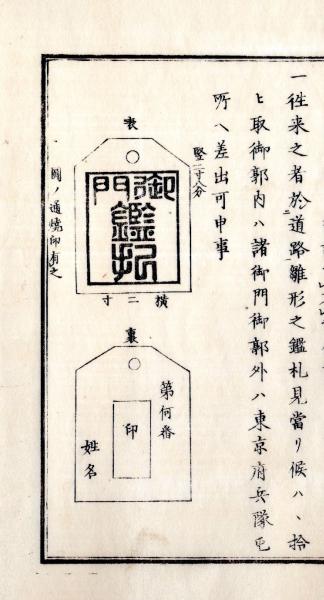 一往来之者於道路雛形之鑑札見當リ候ハヽ拾
ヒ取御郭内ハ諸御門御郭外ハ東京府兵隊屯
所ヘ差出可申事
表
竪二寸八分
御門鑑札
横二寸
図ノ通焼印有之
裏
第何番
印
姓名